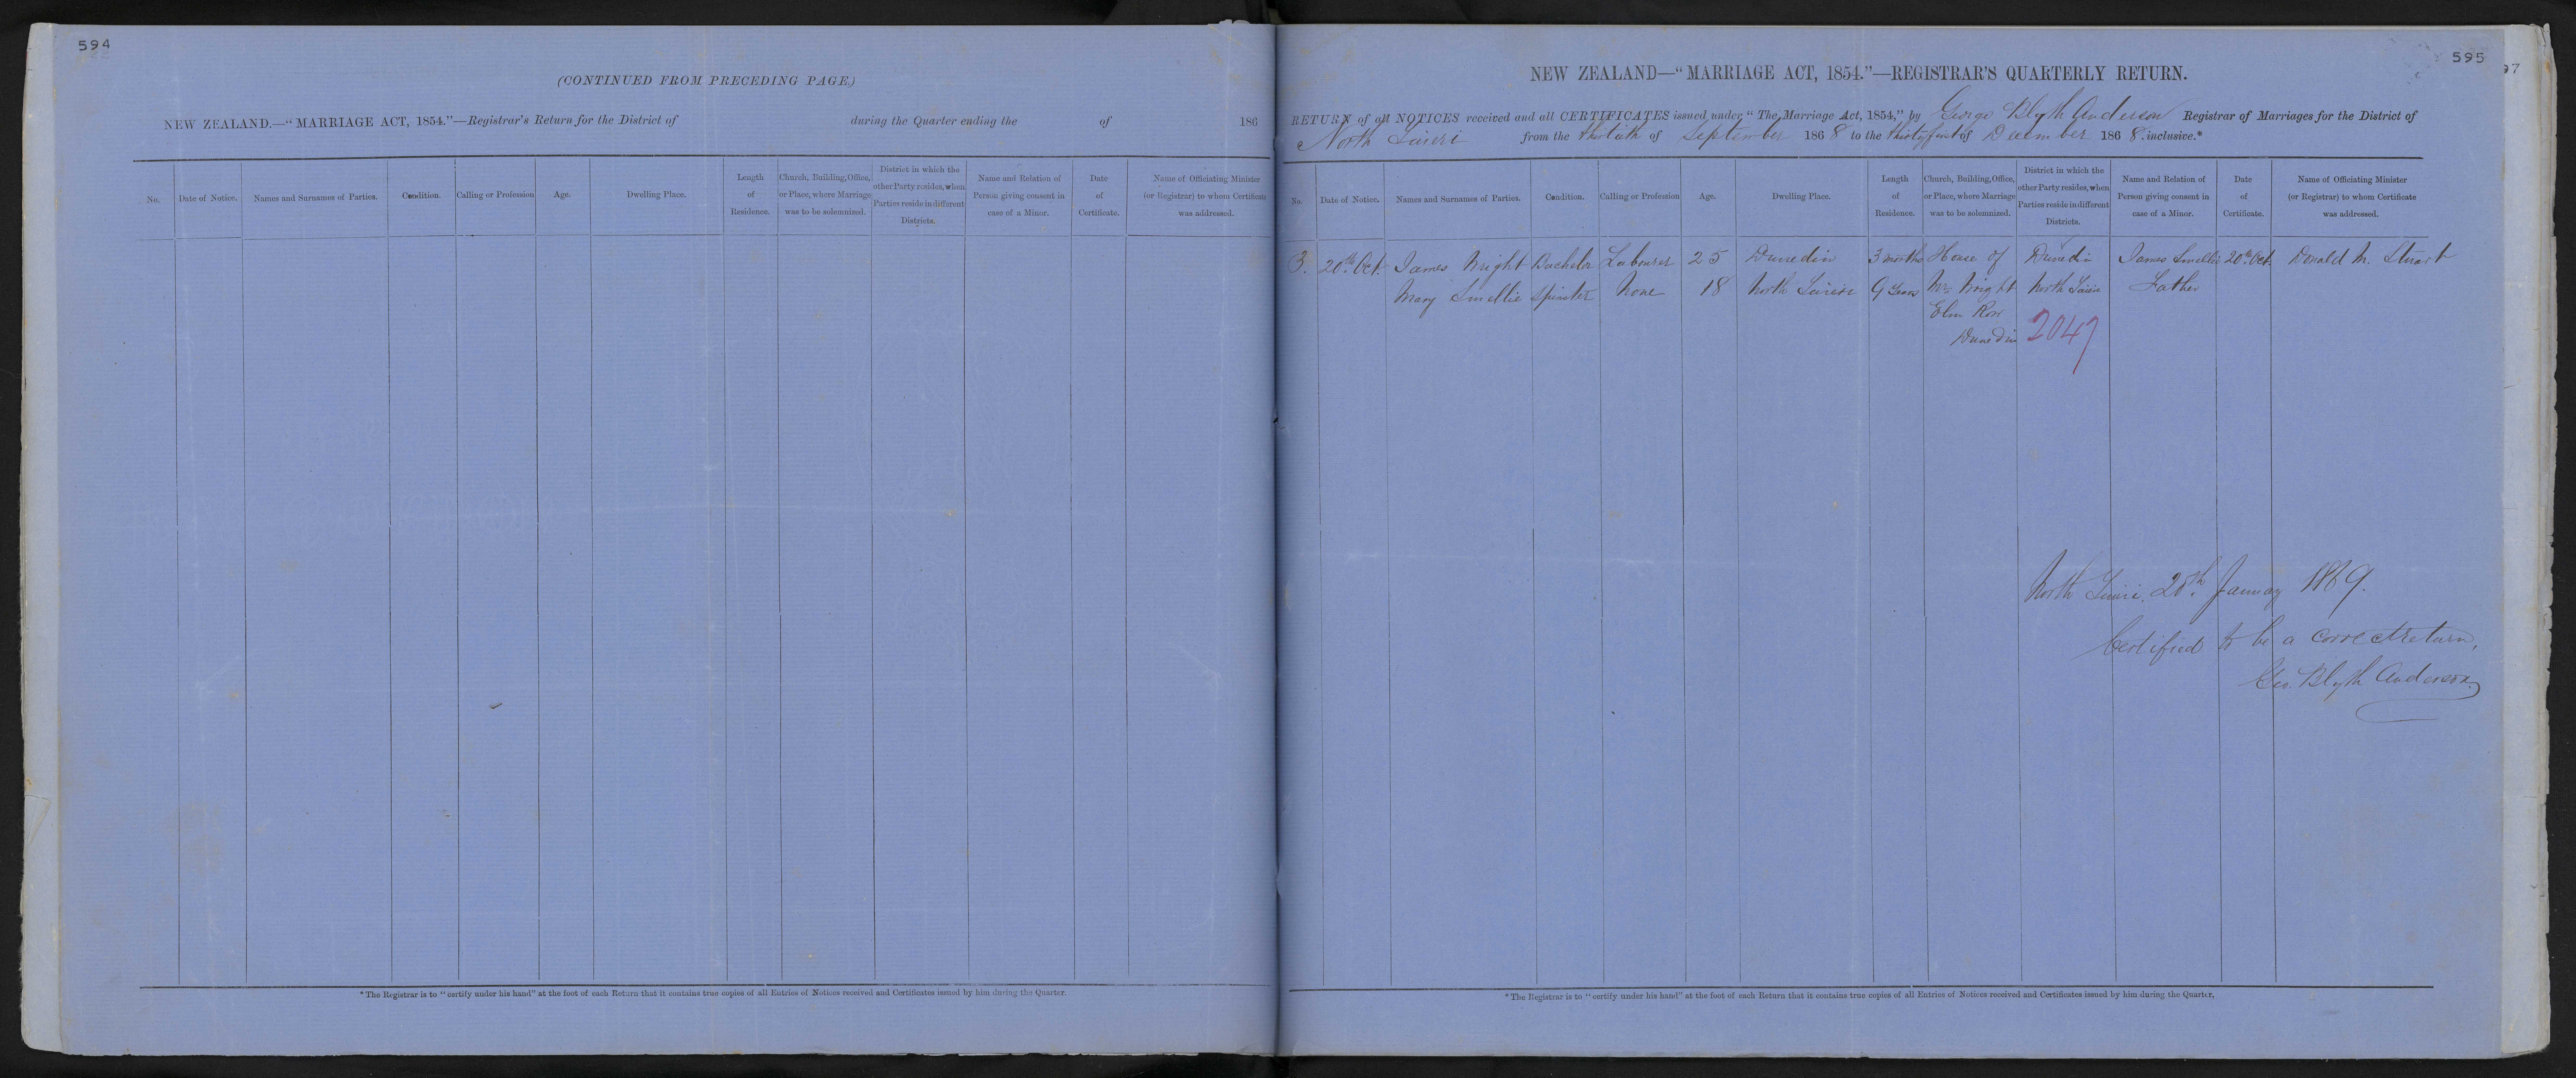 594
(CONTINUED FROM PRECEDING PAGE.)
NEW ZEALAND.—"MARRIAGE ACT, 1854."—Registrar's Return for the District of during the Quarter ending the of 186
No. Date of Notice. Names and Surnames of Parties. Condition. Calling or Profession Age. Dwelling Place. Length of Residence. Church, Building, Office, or Place, where Marriage was to be solemnized. District in which the other Party resides, when Parties reside in different Districts. Name and Relation of Person giving consent in case of a Minor. Date of Certificate. Name of Officiating Minister (or Registrar) to whom Certificate was addressed.
*The Registrar is to "certify under his hand" at the foot of each Return that it contains true copies of all Entries of Notices received and Certificates issued by him during the Quarter.
595
97
NEW ZEALAND—"MARRIAGE ACT, 1854."—REGISTRAR'S QUARTERLY RETURN.
RETURN of all NOTICES received and all CERTIFICATES issued under "The Marriage Act, 1854," by George Blyth Anderson Registrar of Marriages for the District of
North Taieri from the thirtieth of September 1868 to the thirtyfirst of December 1868 inclusive.*
No. Date of Notice. Names and Surnames of Parties. Condition. Calling or Profession Age. Dwelling Place. Length of Residence. Church, Building, Office, or Place, where Marriage was to be solemnized. District in which the other Party resides, when Parties reside in different Districts. Name and Relation of Person giving consent in case of a Minor. Date of Certificate. Name of Officiating Minister (or Registrar) to whom Certificate was addressed.
3. 20th Oct. James Wright Bachelor Labourer 25 Dunedin 3 months House of Dunedin James Smellie 20th Oct. Donald M. Stuart
Mary Smellie Spinster None 18 North Taieri 9 Years Mrs Wright North Taieri Father
Elm Row
Dunedin 2047
North Taieri, 20th January 1869.
Certified to be a correct return,
Geo. Blyth Anderson.
*The Registrar is to "certify under his hand" at the foot of each Return that it contains true copies of all Entries of Notices received and Certificates issued by him during the Quarter.